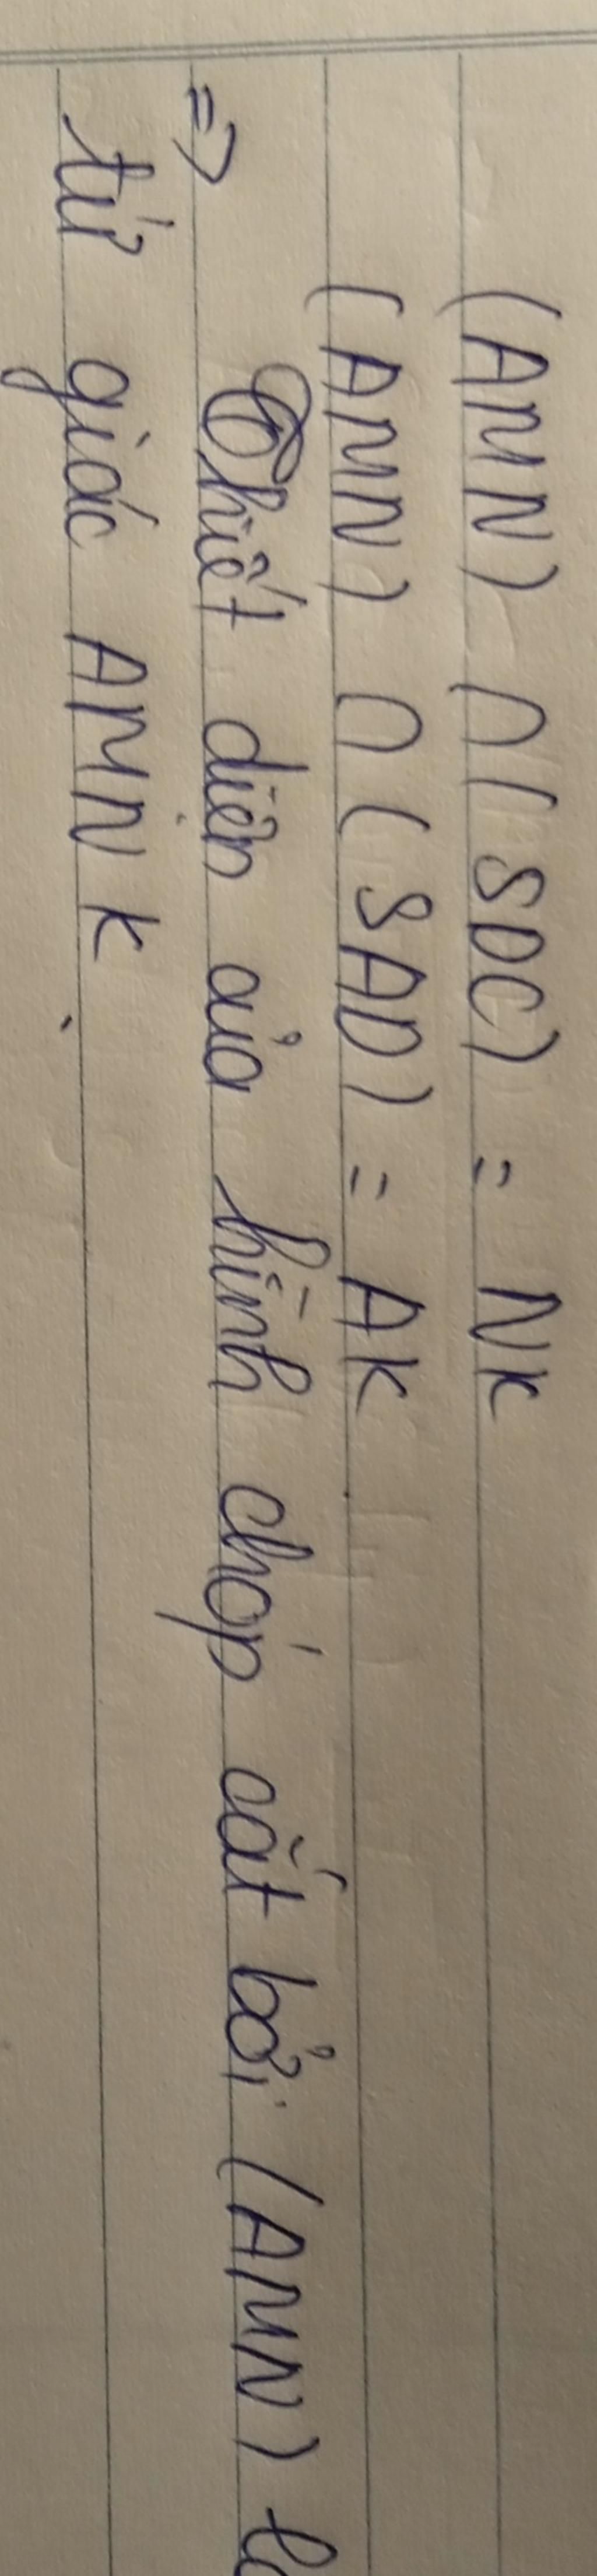 (AMN) ∩ (SDC) = NK
(AMN) ∩ (SAD) = AK
=> Thiết diện của hình chóp cắt bởi (AMN) là
tứ giác AMNK.